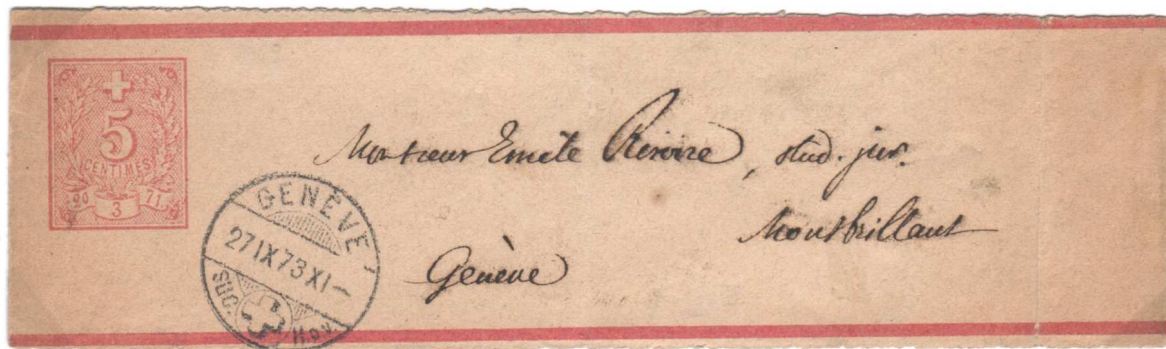 5
CENTIMES
20 3 71
GENÈVE 1
27 IX 73 XI–
SUC.
Monsieur Emile Rivoire, stud. jur.
Montbrillant
Genève